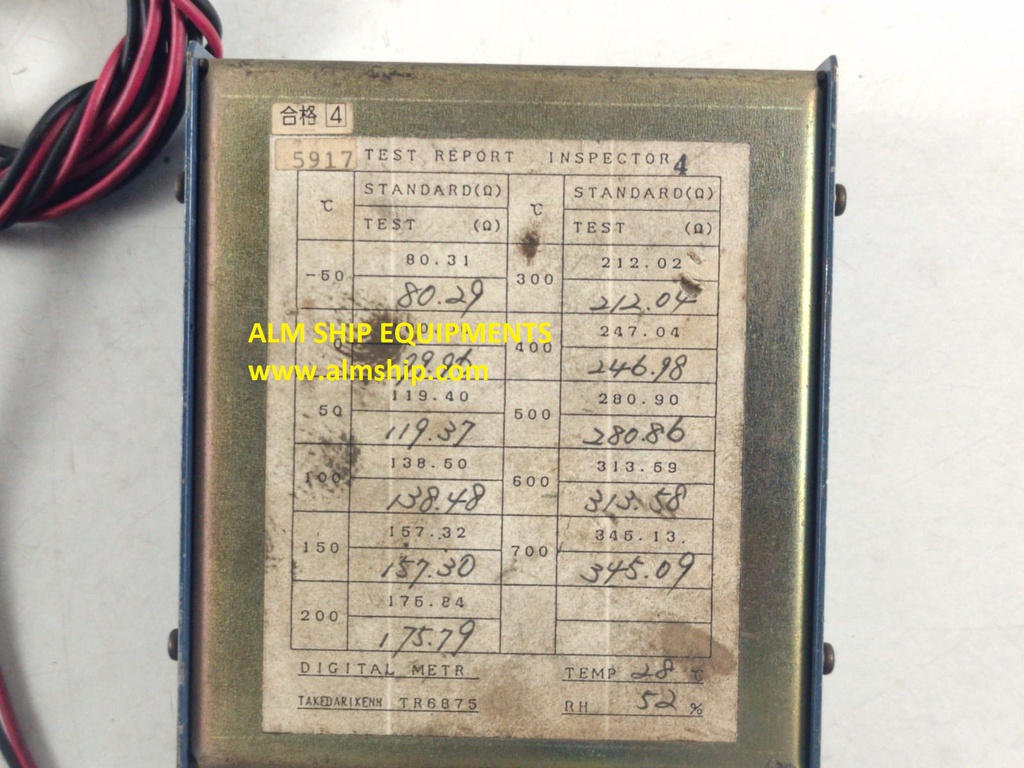 合格 4
5917 TEST REPORT INSPECTOR 4
℃ STANDARD(Ω) ℃ STANDARD(Ω)
TEST (Ω) TEST (Ω)
-50 80.31 300 212.02
80.29 212.04
ALM SHIP EQUIPMENTS
0 400 247.04
246.98
www.almship.com
50 119.40 500 280.90
119.37 280.86
100 138.50 600 313.59
138.48 313.58
150 157.32 700 345.13.
157.30 345.09
200 175.84
175.79
DIGITAL METR TEMP 28 ℃
TAKEDARIKENN TR6875 RH 52 %